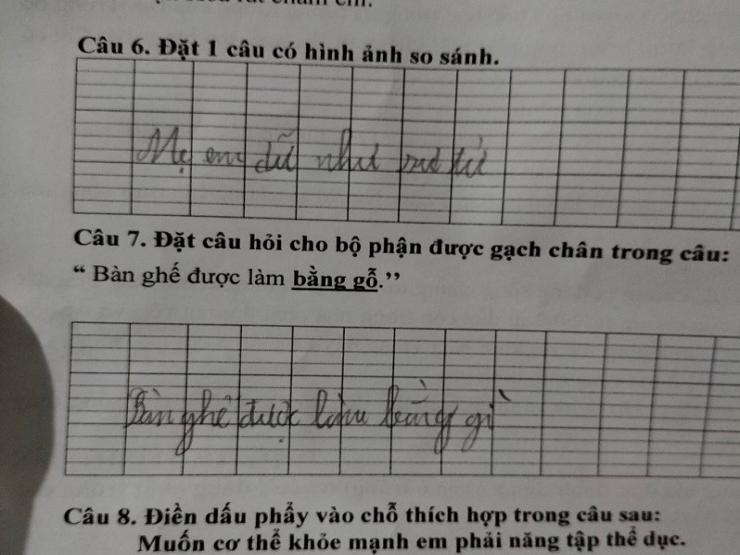 Câu 6. Đặt 1 câu có hình ảnh so sánh.
Mẹ em dữ như sư tử
Câu 7. Đặt câu hỏi cho bộ phận được gạch chân trong câu:
“ Bàn ghế được làm bằng gỗ.”
Bàn ghế được làm bằng gì
Câu 8. Điền dấu phẩy vào chỗ thích hợp trong câu sau:
Muốn cơ thể khỏe mạnh em phải năng tập thể dục.